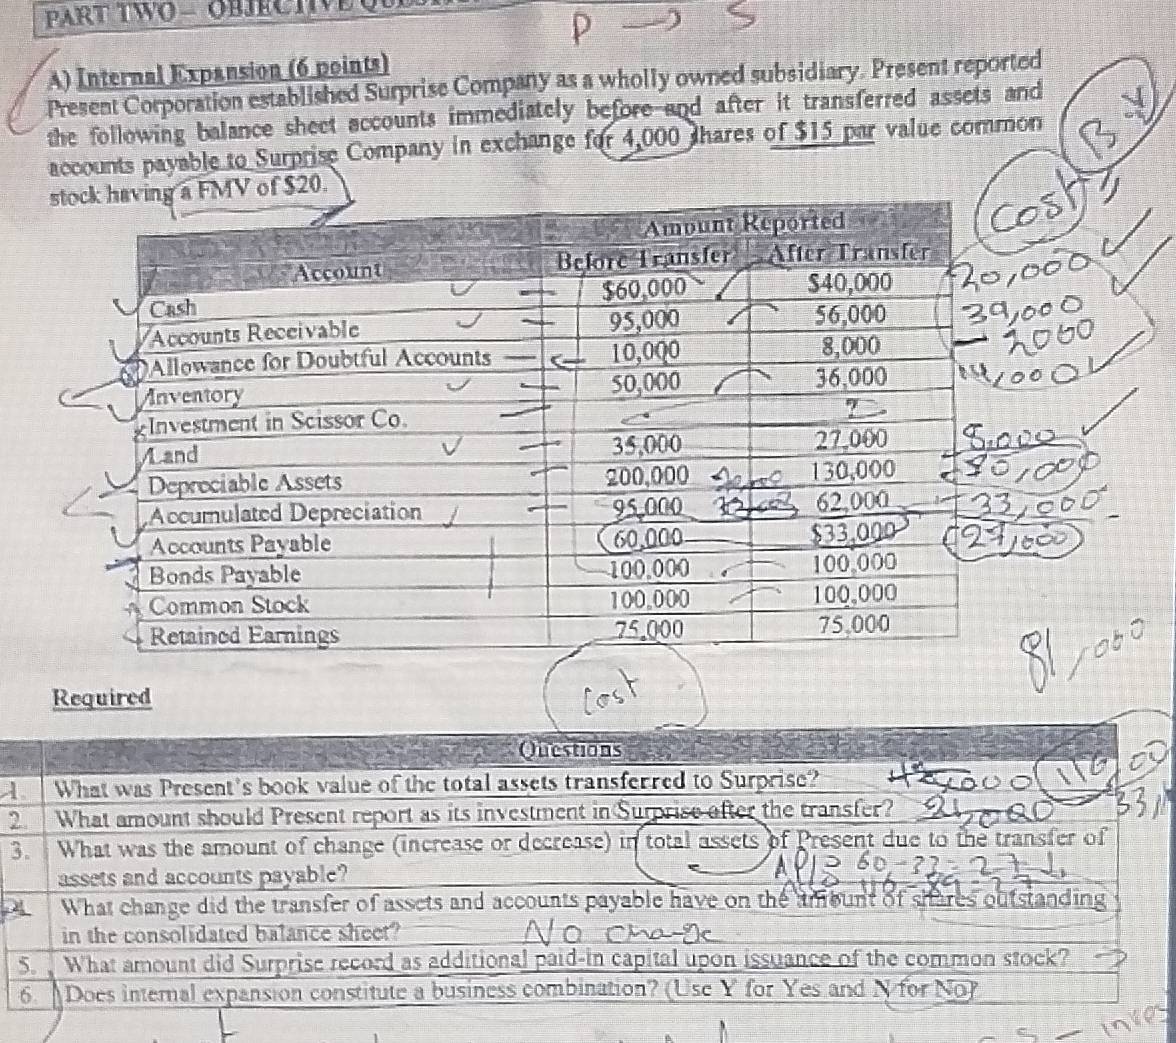 PART TWO - OBJECTIVE
P → S
A) Internal Expansion (6 points)
Present Corporation established Surprise Company as a wholly owned subsidiary. Present reported
the following balance sheet accounts immediately before and after it transferred assets and
accounts payable to Surprise Company in exchange for 4,000 shares of $15 par value common
stock having a FMV of $20.
B.V
Cost
Amount Reported
Account Before Transfer After Transfer
Cash $60,000 $40,000 20,000
Accounts Receivable 95,000 56,000 39,000
Allowance for Doubtful Accounts 10,000 8,000 - 2000
Inventory 50,000 36,000 14,000
Investment in Scissor Co. ?
Land 35,000 27,000 8,000
Depreciable Assets 200,000 130,000 80,000
Accumulated Depreciation 95,000 62,000 33,000
Accounts Payable 60,000 $33,000 (27,000)
Bonds Payable 100,000 100,000
Common Stock 100,000 100,000
Retained Earnings 75,000 75,000
81,000
Cost
Required
Questions
1. What was Present's book value of the total assets transferred to Surprise?
2. What amount should Present report as its investment in Surprise after the transfer?
3. What was the amount of change (increase or decrease) in total assets of Present due to the transfer of
assets and accounts payable?
A/P 60-33=27
4. What change did the transfer of assets and accounts payable have on the amount of shares outstanding
in the consolidated balance sheet? No change
5. What amount did Surprise record as additional paid-in capital upon issuance of the common stock?
6. Does internal expansion constitute a business combination? (Use Y for Yes and N for No)